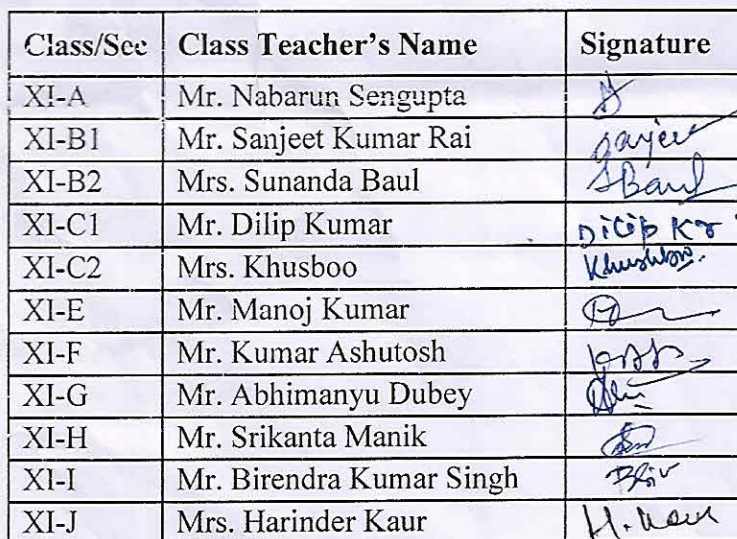 Class/Sec Class Teacher's Name Signature
XI-A Mr. Nabarun Sengupta
XI-B1 Mr. Sanjeet Kumar Rai Sanjeev
XI-B2 Mrs. Sunanda Baul SBaul
XI-C1 Mr. Dilip Kumar Dilip Kr
XI-C2 Mrs. Khusboo Khushboo.
XI-E Mr. Manoj Kumar
XI-F Mr. Kumar Ashutosh
XI-G Mr. Abhimanyu Dubey
XI-H Mr. Srikanta Manik
XI-I Mr. Birendra Kumar Singh
XI-J Mrs. Harinder Kaur H. Kaur